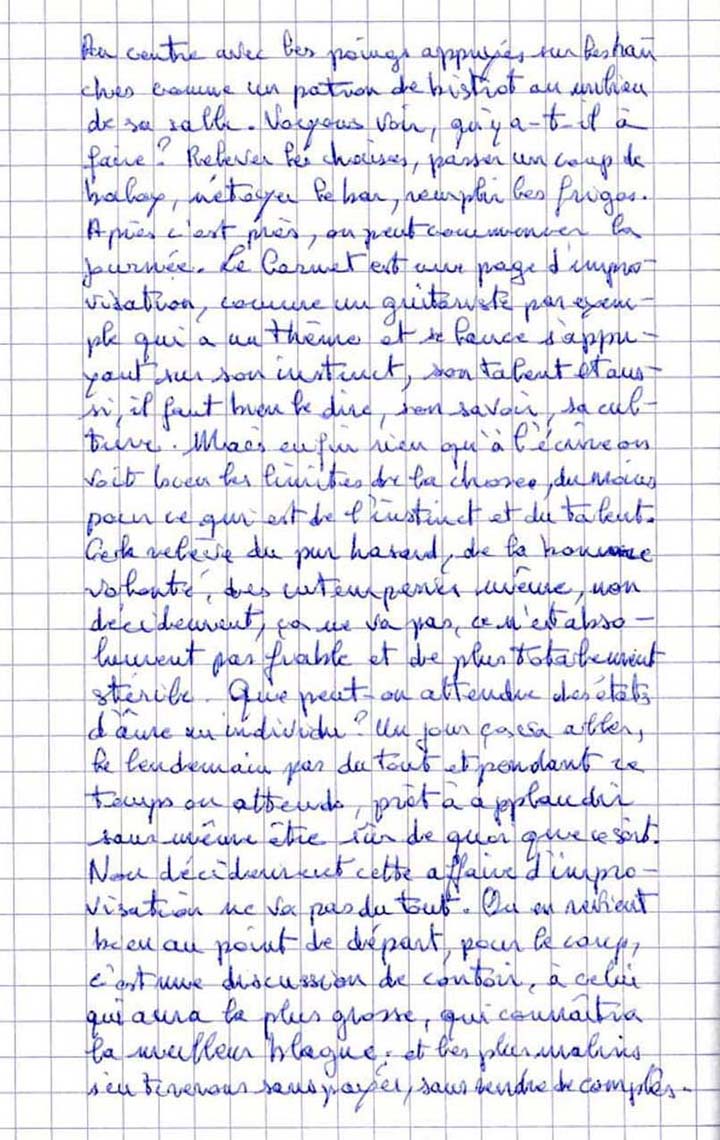 Au centre avec les poings appuyés sur les han
ches comme un patron de bistrot au milieu
de sa salle. Voyons voir, qu'y a-t-il à
faire? Relever les chaises, passer un coup de
balay, nétoyer le bar, remplir les frigos.
Après c'est près, on peut commencer la
journée. Le Carnet est une page d'impro-
visation, comme un guitariste par exem-
ple qui a un thème et se lance s'appu-
yant sur son instinct, son talent et aus-
si, il faut bien le dire, son savoir, sa cul-
ture. Mais enfin rien qu'à l'écrire on
voit bien les limites de la chose, du moins
pour ce qui est de l'instinct et du talent.
Cela relève du pur hasard, de la bonne
volonté, des intempéries même, non
décidemment, ça ne va pas, ce n'est abso-
lument pas fiable et de plus totalement
stérile. Que peut-on attendre des états
d'âme un individu? Un jour ça va aller,
le lendemain pas du tout et pendant ce
temps on attends, prêt à applaudir
sans même être sûr de quoi que ce soit.
Non décidemment cette affaire d'impro-
visation ne va pas du tout. On en revient
bien au point de départ, pour le coup,
c'est une discussion de contoir, à celui
qui aura la plus grosse, qui connaîtra
la meilleur blague, et les plus malins
s'en tireront sans payer, sans rendre de comptes.